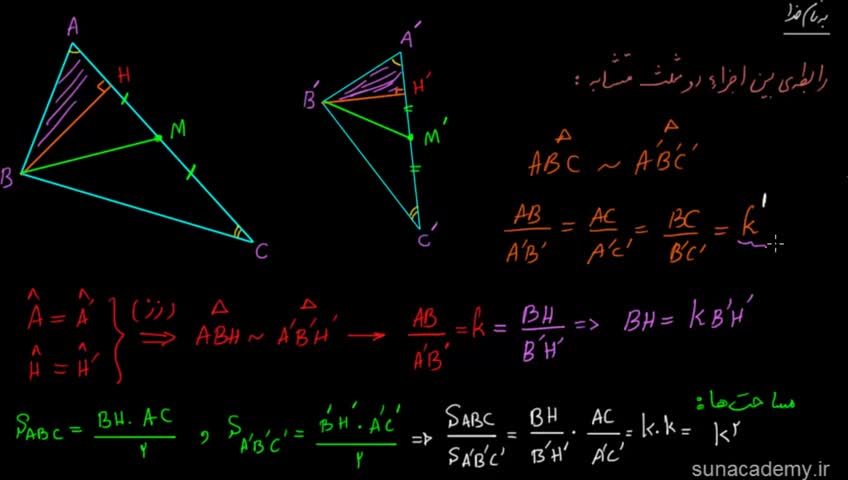 به نام خدا
رابطه‌ی بین اجزاء دو مثلث متشابه :
A
H
M
B
C
A′
B′
H′
M′
C′
ABC ~ A′B′C′
AB/A′B′ = AC/A′C′ = BC/B′C′ = k′
Â = Â′
Ĥ = Ĥ′
(زز) ⇒ ABH ~ A′B′H′ → AB/A′B′ = k = BH/B′H′ ⇒ BH = k B′H′
مساحت‌ها :
S_ABC = BH · AC/۲ , S_A′B′C′ = B′H′ · A′C′/۲ ⇒ S_ABC/S_A′B′C′ = BH/B′H′ · AC/A′C′ = k·k = k²
sunacademy.ir